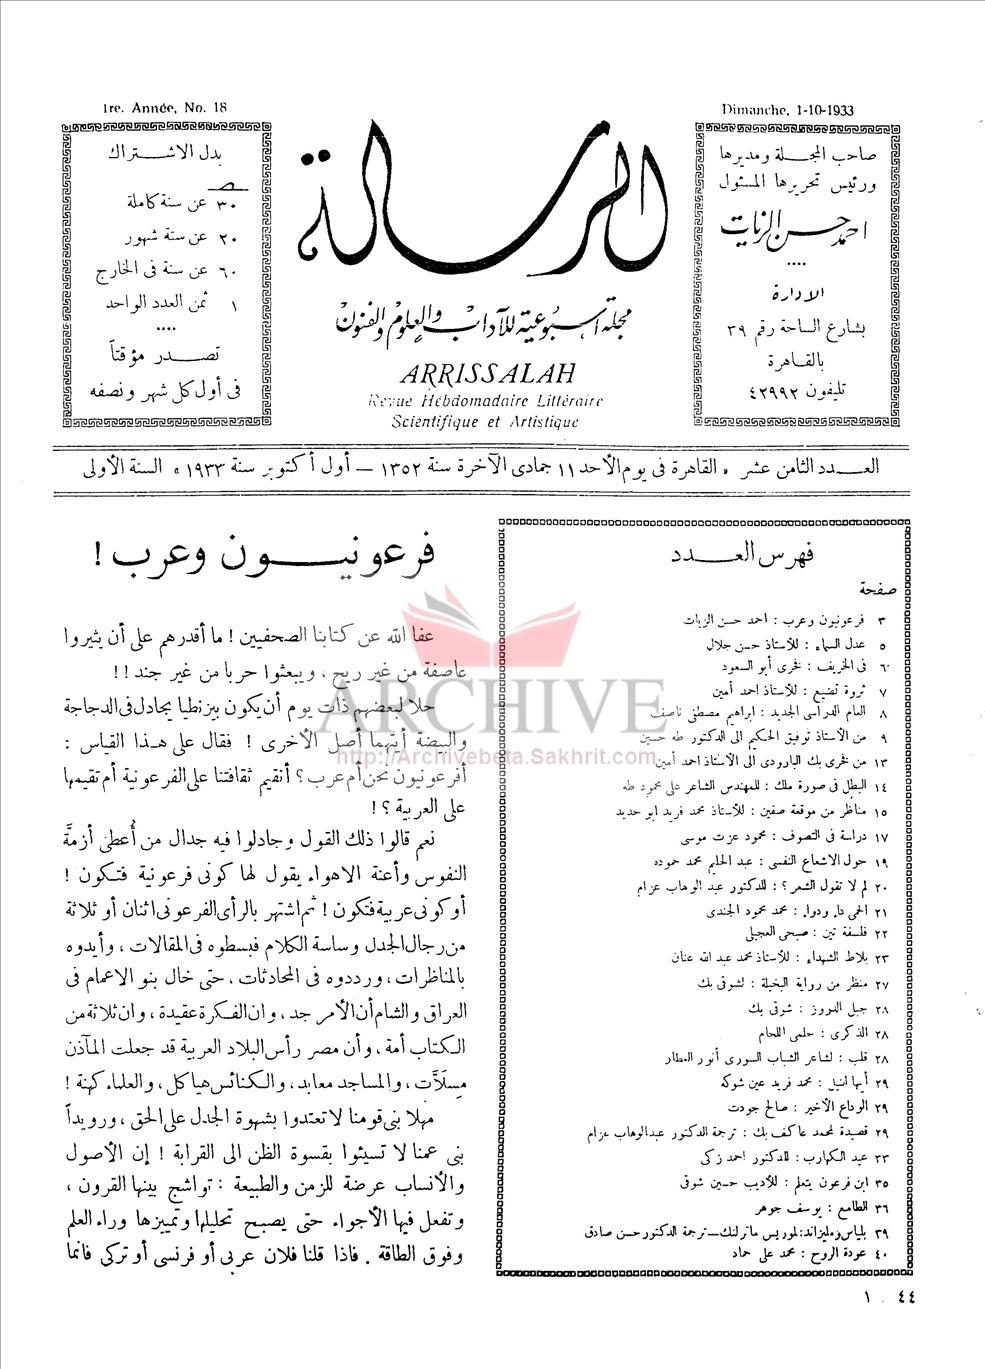 1re. Année, No. 18
Dimanche, 1-10-1933
صاحب المجلة ومديرها
ورئيس تحريرها المسئول
احمد حسن الزيات
الادارة
بشارع الساحة رقم ٣٩
بالقاهرة
تليفون ٤٢٩٩٢
الرسالة
مجلة أسبوعية للآداب والعلوم والفنون
ARRISSALAH
Revue Hebdomadaire Littéraire
Scientifique et Artistique
بدل الاشتراك
٣٠ عن سنة كاملة
٢٠ عن ستة شهور
٦٠ عن سنة فى الخارج
١ ثمن العدد الواحد
تصدر مؤقتاً
فى أول كل شهر ونصفه
العدد الثامن عشر « القاهرة فى يوم الأحد ١١ جمادى الآخرة سنة ١٣٥٢ – أول أكتوبر سنة ١٩٣٣ » السنة الأولى
فهرس العدد
صفحة
٣ فرعونيون وعرب : احمد حسن الزيات
٥ عدل السماء : للأستاذ حسن جلال
٦ فى الخريف : فخرى أبو السعود
٧ ثروة تضيع : للأستاذ احمد أمين
٨ العام الدراسى الجديد : ابراهيم مصطفى ناصف
٩ من الأستاذ توفيق الحكيم الى الدكتور طه حسين
١٣ من فخرى بك البارودى الى الأستاذ احمد أمين
١٤ البطل فى صورة ملك : للمهندس الشاعر على محمود طه
١٥ مناظر من موقعة صفين : للأستاذ محمد فريد ابو حديد
١٧ دراسة فى التصوف : محمود عزت موسى
١٩ حول الاشعاع النفسى : عبد الحليم محمد حموده
٢٠ لم لا تقول الشعر؟ : للدكتور عبد الوهاب عزام
٢١ الحمى داء ودواء : محمد محمود الجندى
٢٢ فلسفة تين : صبحى العجيلى
٢٣ بلاط الشهداء : للأستاذ محمد عبد الله عنان
٢٧ منظر من رواية البخيلة : لشوقى بك
٢٨ جبل النوروز : شوقى بك
٢٨ الذكرى : حلمى اللحام
٢٨ قلب : لشاعر الشباب السورى أنور العطار
٢٩ أيها الليل : محمد فريد عين شوكه
٢٩ الوداع الأخير : صالح جودت
٢٩ قصيدة لمحمد عاكف بك : ترجمة الدكتور عبد الوهاب عزام
٣٣ عيد الكهارب : للدكتور احمد زكى
٣٥ ابن فرعون يتعلم : للأديب حسين شوقى
٣٦ الطامع : يوسف جوهر
٣٩ بلياس ومليزاند : لموريس ماترلنك – ترجمة الدكتور حسن صادق
٤٠ عودة الروح : محمد على حماد
فرعونيون وعرب !
عفا الله عن كتابنا الصحفيين ! ما أقدرهم على أن يثيروا
عاصفة من غير ريح ، ويبعثوا حربا من غير جند !!
حلا لبعضهم ذات يوم أن يكون بيزنطيا يجادل فى الدجاجة
والبيضة أيتهما أصل الأخرى ! فقال على هذا القياس :
أفرعونيون نحن أم عرب؟ أنقيم ثقافتنا على الفرعونية أم نقيمها
على العربية ؟!
نعم قالوا ذلك القول وجادلوا فيه جدال من أُعطى أزمةَّ
النفوس وأعنة الاهواء يقول لها كونى فرعونية فتكون !
أو كونى عربية فتكون ! ثم اشتهر بالرأى الفرعونى اثنان أو ثلاثة
من رجال الجدل وساسة الكلام فبسطوه فى المقالات ، وأيدوه
بالمناظرات ، ورددوه فى المحادثات ، حتى خال بنو الاعمام فى
العراق والشام أن الأمر جد ، وان الفكرة عقيدة ، وان ثلاثة من
الكتاب أمة ، وأن مصر رأس البلاد العربية قد جعلت المآذن
مسلاَّت ، والمساجد معابد ، والكنائس هياكل ، والعلماء كهنة !
مهلا بنى قومنا لا تعتدوا بشهوة الجدل على الحق ، ورويداً
بنى عمنا لا تسيئوا بقسوة الظن الى القرابة ! إن الأصول
والأنساب عرضة للزمن والطبيعة : تواشج بينها القرون ،
وتفعل فيها الأجواء حتى يصبح تحليلها وتمييزها وراء العلم
وفوق الطاقة . فاذا قلنا فلان عربى أو فرنسى أو تركى فانما
ARCHIVE
http://Archivebeta.Sakhrit.com
٤٤ . ١